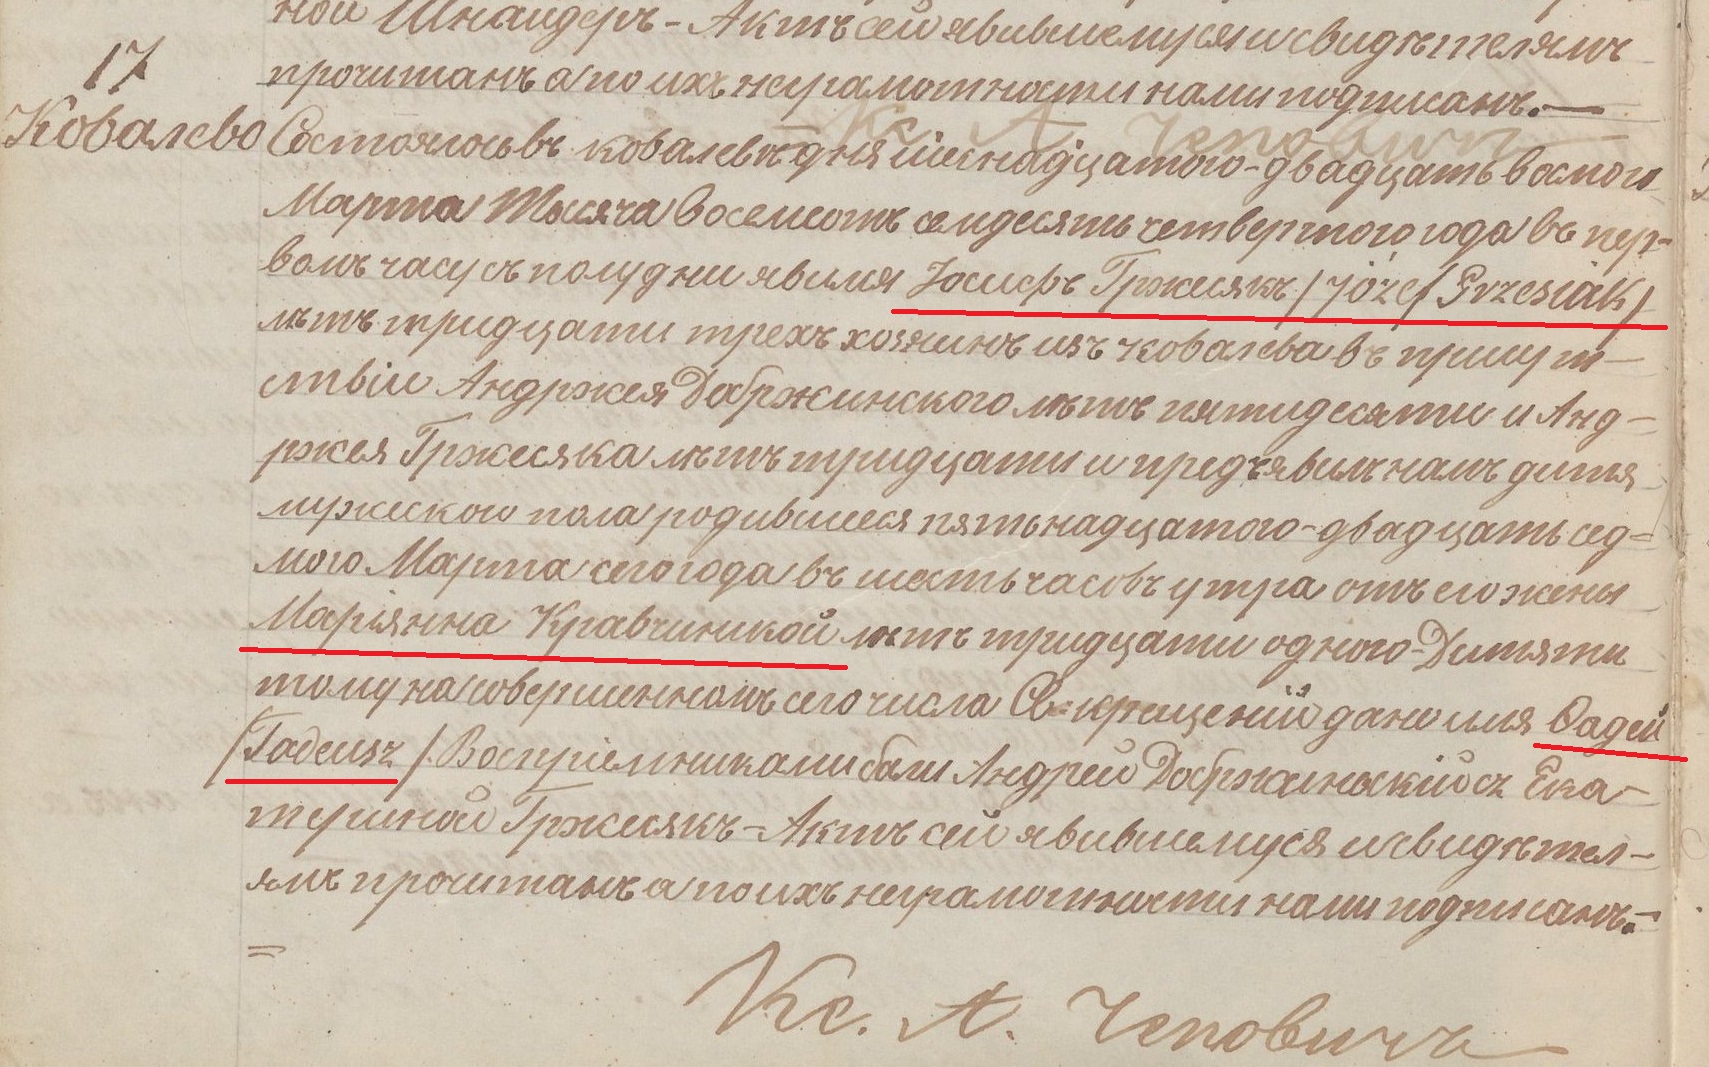 ной Шнайдеръ - Актъ сей явившемуся и свидѣтелямъ
прочитанъ а по ихъ неграмотности нами подписанъ.—
17
Ковалево
Состоялось въ Ковалевѣ дня шеснадцатого-двадцать восмого
Марта Тысяча восемсотъ семдесятъ четвертого года въ пер-
вомъ часу съ полудни явился Іосифъ Гржесякъ /Józef Grzesiak/
лѣтъ тридцати трехъ хозяинъ изъ Ковалева въ присут-
ствіи Андржея Добржинского лѣтъ пятидесяти и Анд-
ржея Гржесяка лѣтъ тридцати и предъявилъ намъ дитя
мужеского пола родившееся пятьнадцатого-двадцать сед-
мого Марта сего года въ шесть часовъ утра отъ его жены
Маріянна Кравчинской лѣтъ тридцати одного - Дитяти
тому на совершенномъ сего числа Св. крещеніи дано имя Фадей
/Tadeusz/. Воспріемниками были Андрей Добржинскій съ Ека-
териной Гржесякъ - Актъ сей явившемуся и свидѣтел-
ямъ прочитанъ а по ихъ неграмотности нами подписанъ.-
Кс. А. Чепович